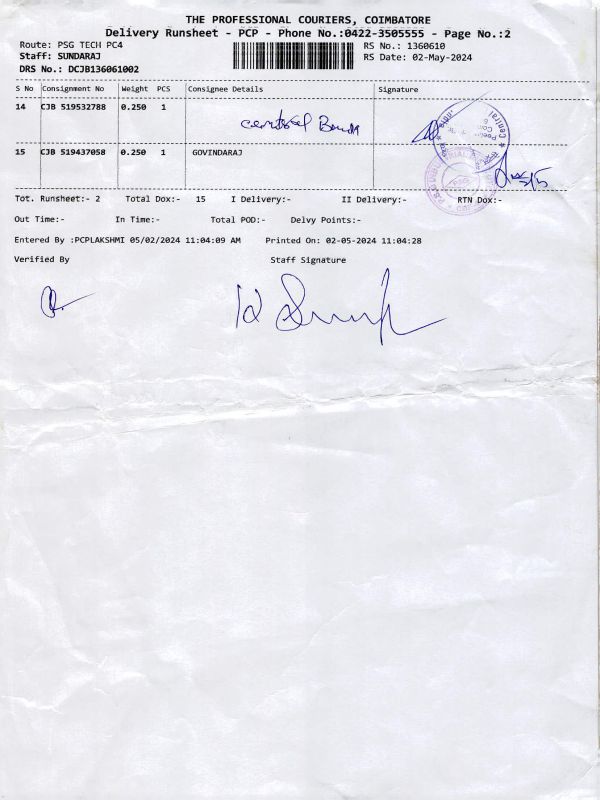 THE PROFESSIONAL COURIERS, COIMBATORE
Delivery Runsheet - PCP - Phone No.:0422-3505555 - Page No.:2
Route: PSG TECH PC4 RS No.: 1360610
Staff: SUNDARAJ RS Date: 02-May-2024
DRS No.: DCJB136061002
S No Consignment No Weight PCS Consignee Details Signature
14 CJB 519532788 0.250 1
Central
15 CJB 519437058 0.250 1 GOVINDARAJ
Tot. Runsheet:- 2 Total Dox:- 15 I Delivery:- II Delivery:- RTN Dox:-
Out Time:- In Time:- Total POD:- Delvy Points:-
Entered By :PCPLAKSHMI 05/02/2024 11:04:09 AM Printed On: 02-05-2024 11:04:28
Verified By Staff Signature